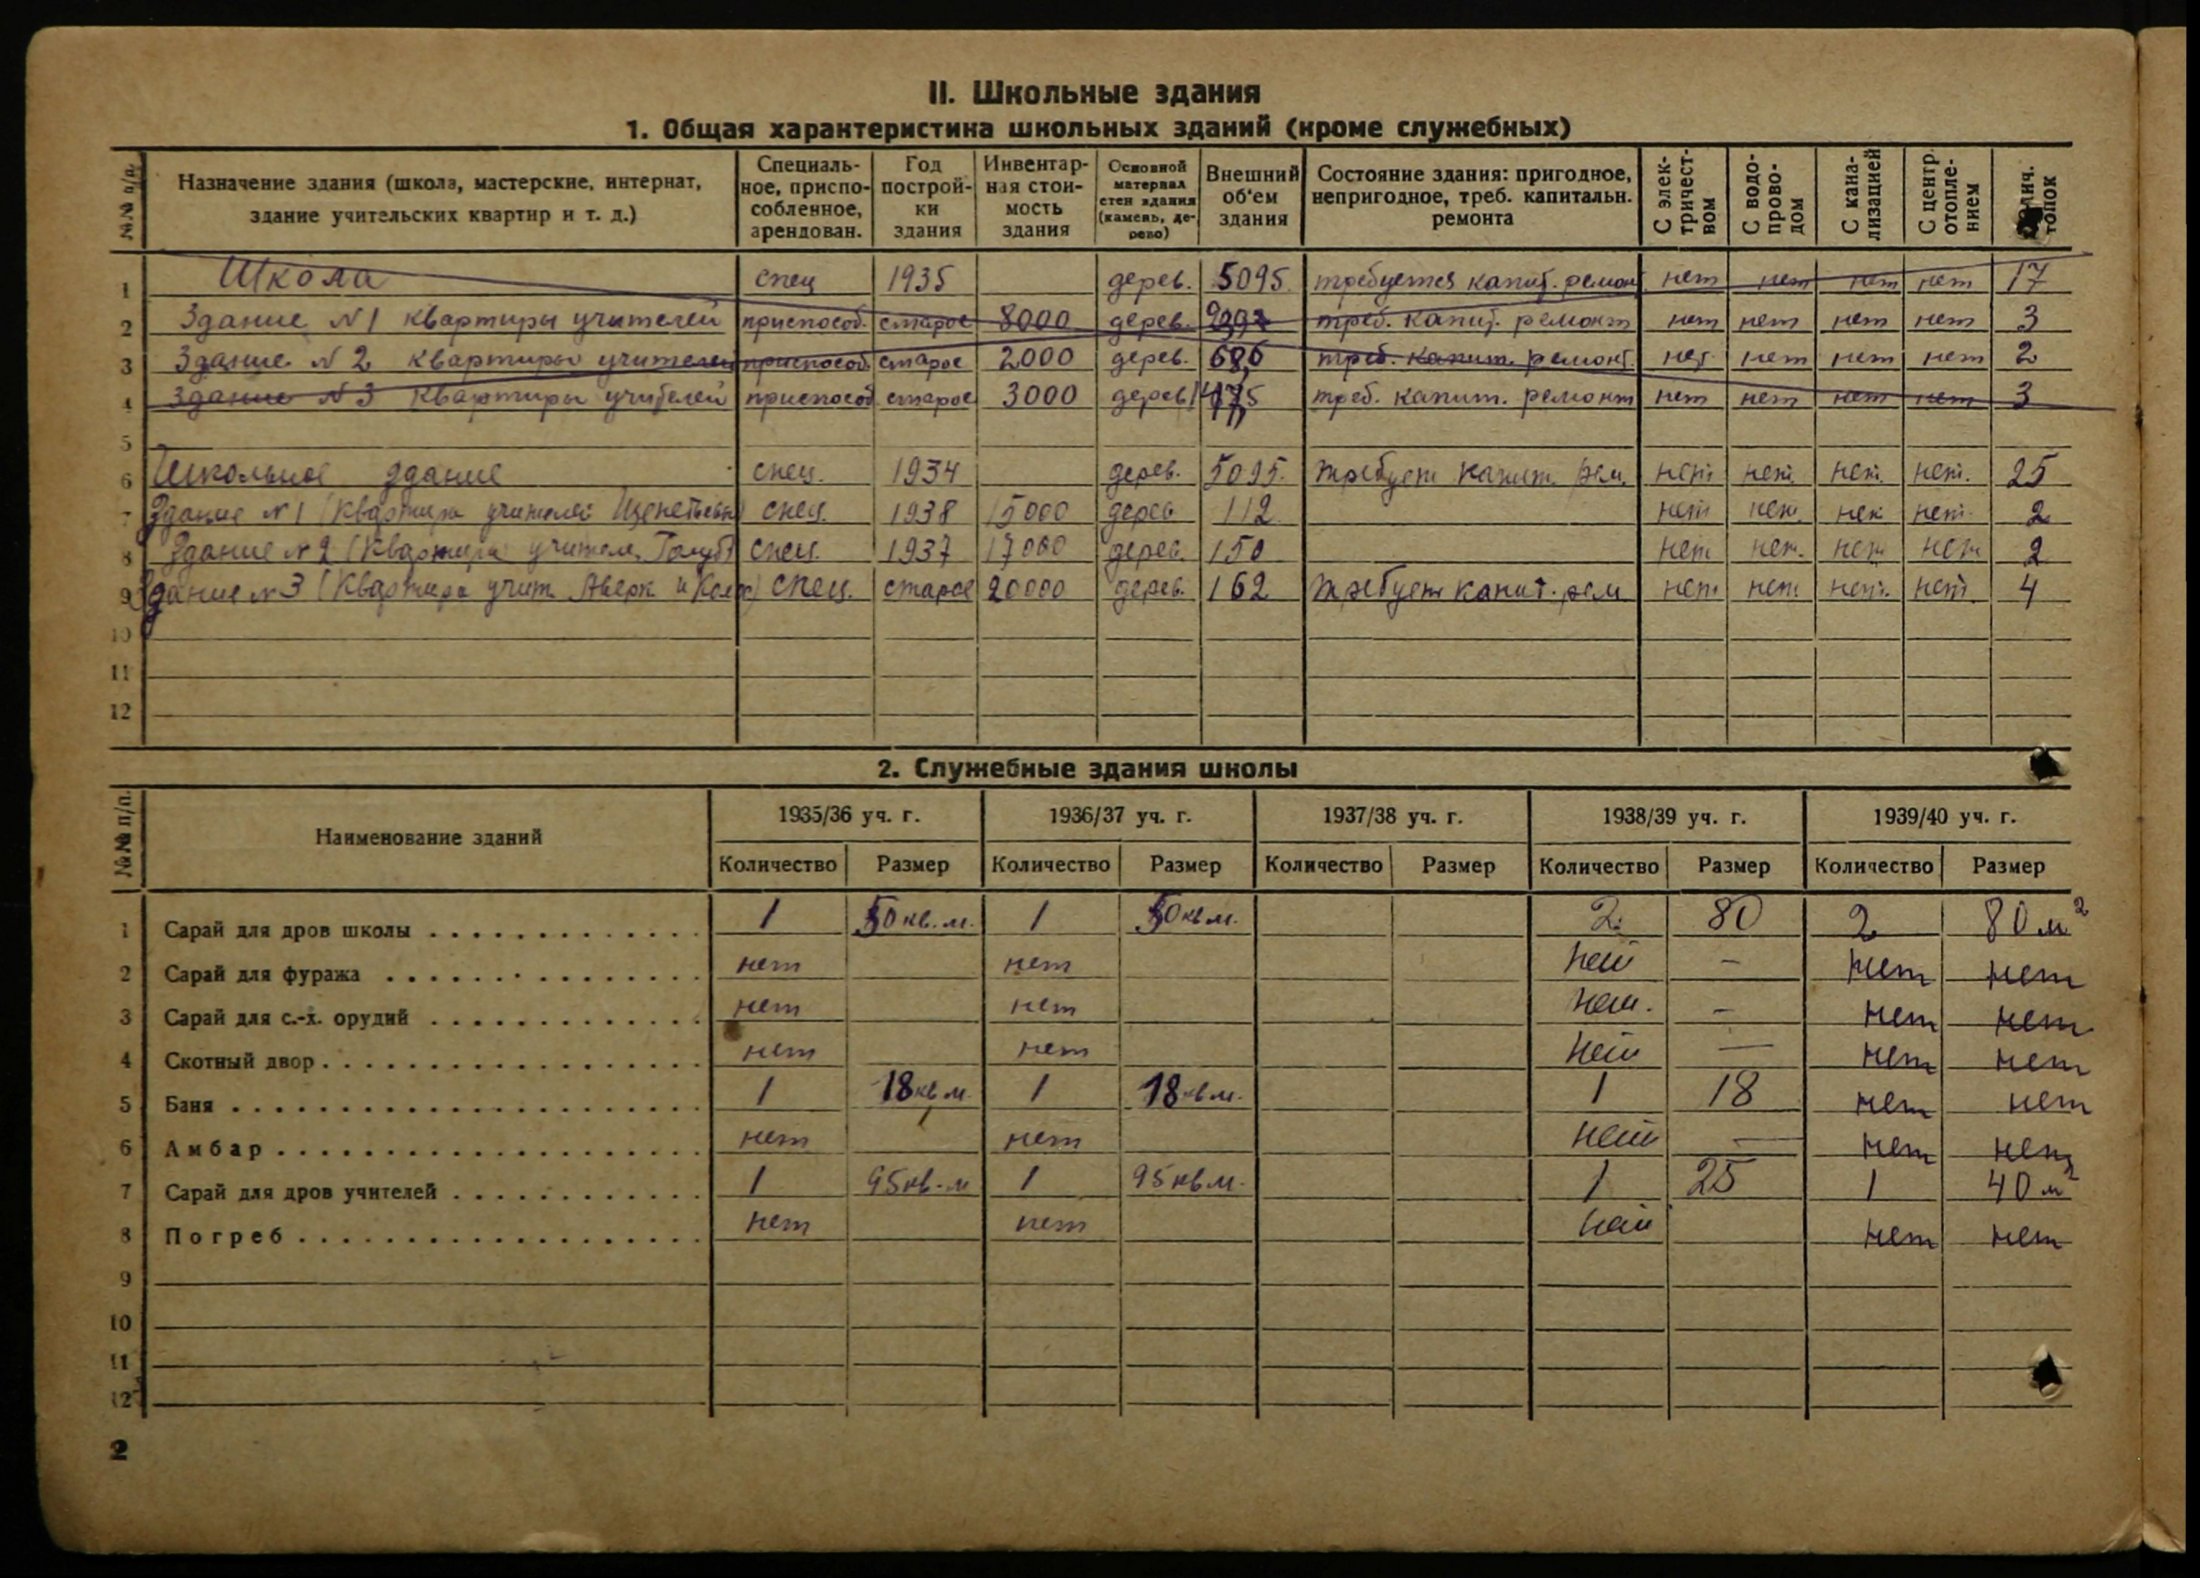 II. Школьные здания
1. Общая характеристика школьных зданий (кроме служебных)
№№ п/п. Назначение здания (школа, мастерские, интернат, здание учительских квартир и т. д.) Специаль-ное, приспо-собленное, арендован. Год построй-ки здания Инвентар-ная стои-мость здания Основной материал стен здания (камень, де-рево) Внешний об'ем здания Состояние здания: пригодное, непригодное, треб. капитальн. ремонта С элек-тричест-вом С водо-прово-дом С кана-лизацией С центр. отопле-нием топок
1 Школа спец 1935 дерев. 5095 требуется капит. ремон нет нет нет нет 17
2 Здание №1 квартиры учителей приспособ. старое 8000 дерев. треб. капит. ремонт нет нет нет нет 3
3 Здание №2 квартиры учителей приспособ. старое 2000 дерев. 686 треб. капит. ремонт. нет нет нет нет 2
4 Здание №3 квартиры учителей приспособ старое 3000 дерев треб. капит. ремонт нет нет нет нет 3
5
6 Школьное здание спец. 1934 дерев. 5095. требует капит. рем. нет нет. нет. нет. 25
7 Здание №1 (квартира учителей спец. 1938 15000 дерев 112 нет нет. нет. 2
8 Здание №2 (квартира учител. спец. 1937 17000 дерев. 150 нет нет. нет нет 2
9 Здание №3 (квартира учит. Аверк и спец. старое 20000 дерев. 162 требует капит. рем нет нет нет. нет. 4
10
11
12
2. Служебные здания школы
№№ п/п. Наименование зданий 1935/36 уч. г. 1936/37 уч. г. 1937/38 уч. г. 1938/39 уч. г. 1939/40 уч. г.
Количество Размер Количество Размер Количество Размер Количество Размер Количество Размер
1 Сарай для дров школы 1 50 кв. м. 1 50 кв м. 2 80 2 80 м²
2 Сарай для фуража нет нет нет – нет нет
3 Сарай для с.-х. орудий нет нет нет. – нет нет
4 Скотный двор нет нет нет — нет нет
5 Баня 1 18 кв м. 1 18 кв м. 1 18 нет нет
6 Амбар нет нет нет — нет нет
7 Сарай для дров учителей 1 95 кв. м 1 95 кв м. 1 25 1 40 м²
8 Погреб нет нет нет нет нет
9
10
11
12
2